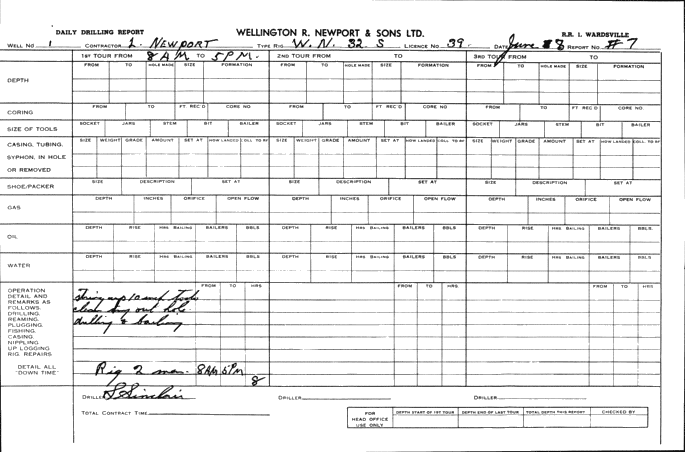 DAILY DRILLING REPORT WELLINGTON R. NEWPORT & SONS LTD. R.R. 1. WARDSVILLE
WELL NO 1 CONTRACTOR L. NEWPORT TYPE RIG W. N. 32 S LICENCE NO 39. DATE June 8 REPORT NO. #7
1ST TOUR FROM 8 AM TO 5 PM. 2ND TOUR FROM TO 3RD TOUR FROM TO
DEPTH
FROM TO HOLE MADE SIZE FORMATION FROM TO HOLE MADE SIZE FORMATION FROM TO HOLE MADE SIZE FORMATION
CORING
FROM TO FT REC'D CORE NO FROM TO FT REC'D CORE NO FROM TO FT REC'D CORE NO
SIZE OF TOOLS
SOCKET JARS STEM BIT BAILER SOCKET JARS STEM BIT BAILER SOCKET JARS STEM BIT BAILER
CASING. TUBING.
SYPHON, IN HOLE
OR REMOVED
SIZE WEIGHT GRADE AMOUNT SET AT HOW LANDED COLL. TO RF SIZE WEIGHT GRADE AMOUNT SET AT HOW LANDED COLL. TO RF SIZE WEIGHT GRADE AMOUNT SET AT HOW LANDED COLL. TO RF
SHOE/PACKER
SIZE DESCRIPTION SET AT SIZE DESCRIPTION SET AT SIZE DESCRIPTION SET AT
GAS
DEPTH INCHES ORIFICE OPEN FLOW DEPTH INCHES ORIFICE OPEN FLOW DEPTH INCHES ORIFICE OPEN FLOW
OIL
DEPTH RISE HRS BAILING BAILERS BBLS DEPTH RISE HRS BAILING BAILERS BBLS DEPTH RISE HRS BAILING BAILERS BBLS.
WATER
DEPTH RISE HRS BAILING BAILERS BBLS. DEPTH RISE HRS BAILING BAILERS BBLS DEPTH RISE HRS BAILING BAILERS BBLS
OPERATION
DETAIL AND
REMARKS AS
FOLLOWS.
DRILLING.
REAMING.
PLUGGING.
FISHING.
CASING.
NIPPLING
UP LOGGING
RIG REPAIRS
FROM TO HRS FROM TO HRS FROM TO HRS
String up 10 inch Tools
clean out hole
drilling & bailing
DETAIL ALL
"DOWN TIME"
Rig 2 men. 8 AM 5 PM
8
DRILLER Sinclair DRILLER DRILLER
TOTAL CONTRACT TIME
FOR
HEAD OFFICE
USE ONLY
DEPTH START OF 1ST TOUR DEPTH END OF LAST TOUR TOTAL DEPTH THIS REPORT CHECKED BY